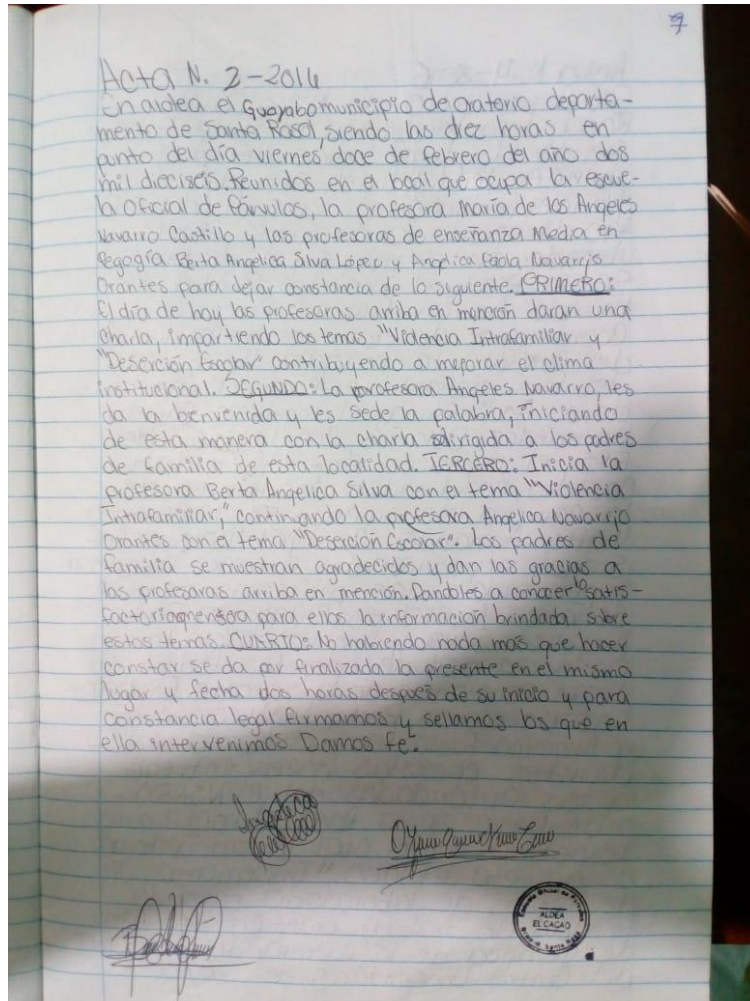 Acta N. 2-2016
En aldea el Guayabo municipio de oratorio departa-
mento de Santa Rosa, siendo las diez horas en
punto del día viernes, doce de febrero del año dos
mil dieciseis. Reunidos en el local que ocupa la escue-
la Oficial de Párvulos, la profesora María de los Angeles
Navarro Castillo y las profesoras de enseñanza Media en
Pegogía Berta Angelica Silva López y Angelica Paola Navarijo
Orantes para dejar constancia de lo siguiente. PRIMERO:
El día de hoy las profesoras arriba en mención daran una
charla, impartiendo los temas "Violencia Intrafamiliar y
"Deserción Escolar" contribuyendo a mejorar el clima
institucional. SEGUNDO: La profesora Angeles Navarro, les
da la bienvenida y les sede la palabra, iniciando
de esta manera con la charla dirigida a los padres
de familia de esta localidad. TERCERO: Inicia la
profesora Berta Angelica Silva con el tema "Violencia
Intrafamiliar," continuando la profesora Angelica Navarijo
Orantes con el tema "Deserción Escolar". Los padres de
familia se muestran agradecidos y dan las gracias a
las profesoras arriba en mención. Dandoles a conocer lo satis-
factorio para ellos la información brindada sobre
estos temas. CUARTO: No habiendo nada mas que hacer
constar se da por finalizada la presente en el mismo
lugar y fecha dos horas después de su inicio y para
constancia legal firmamos y sellamos los que en
ella intervenimos Damos fe.
Angelica
ALDEA
EL CACAO